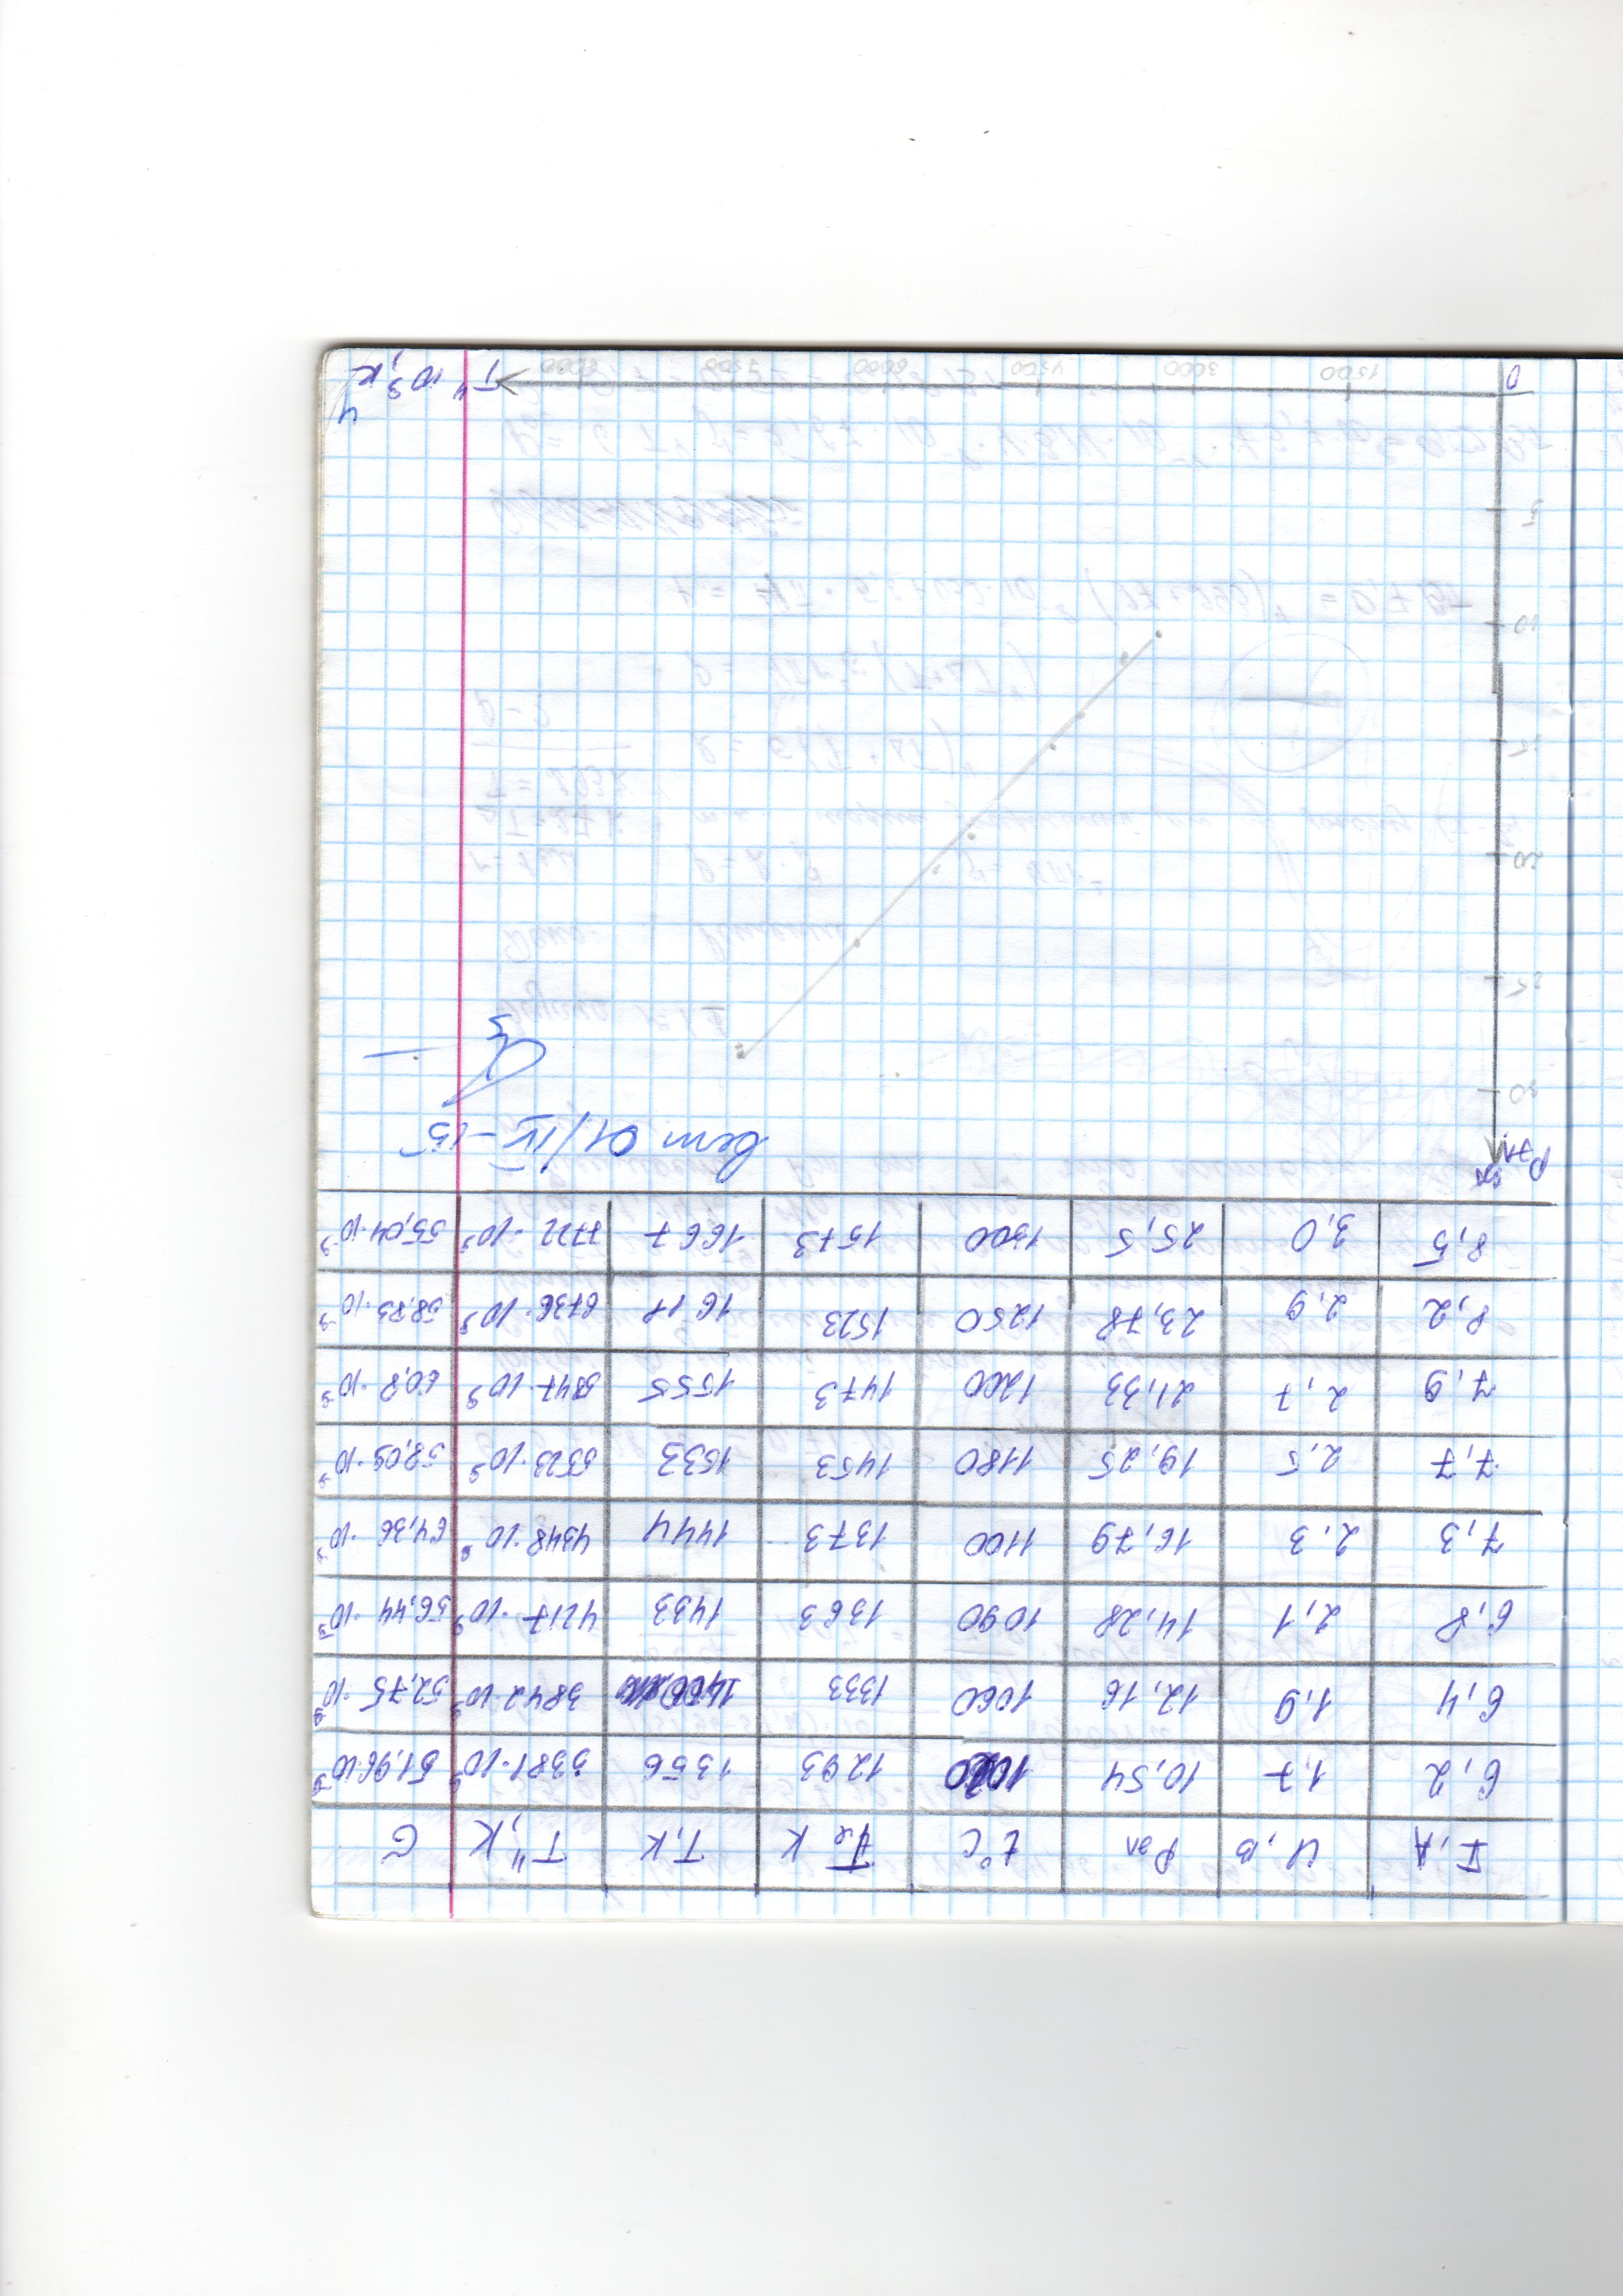 I,A U,B Pэл t°C Tя K T,K T⁴,K σ
6,2 1,7 10,54 1020 1293 1356 3381·10⁹ 51,96·10⁻⁹
6,4 1,9 12,16 1060 1333 1400 3842·10⁹ 52,75·10⁻⁹
6,8 2,1 14,28 1090 1363 1433 4217·10⁹ 56,44·10⁻⁹
7,3 2.3 16,79 1100 1373 1444 4348·10⁹ 64,36·10⁻⁹
7,7 2,5 19,25 1180 1453 1533 5523·10⁹ 58,09·10⁻⁹
7,9 2,7 21,33 1200 1473 1555 5847·10⁹ 60,8·10⁻⁹
8,2 2,9 23,78 1250 1523 1611 6736·10⁹ 58,83·10⁻⁹
8,5 3,0 25,5 1300 1573 1667 7722·10⁹ 55,04·10⁻⁹
Pэл
01/IV-15
30
25
20
15
10
5
0 1500 3000 4500 6000 7500 T⁴ 10⁹, K⁴